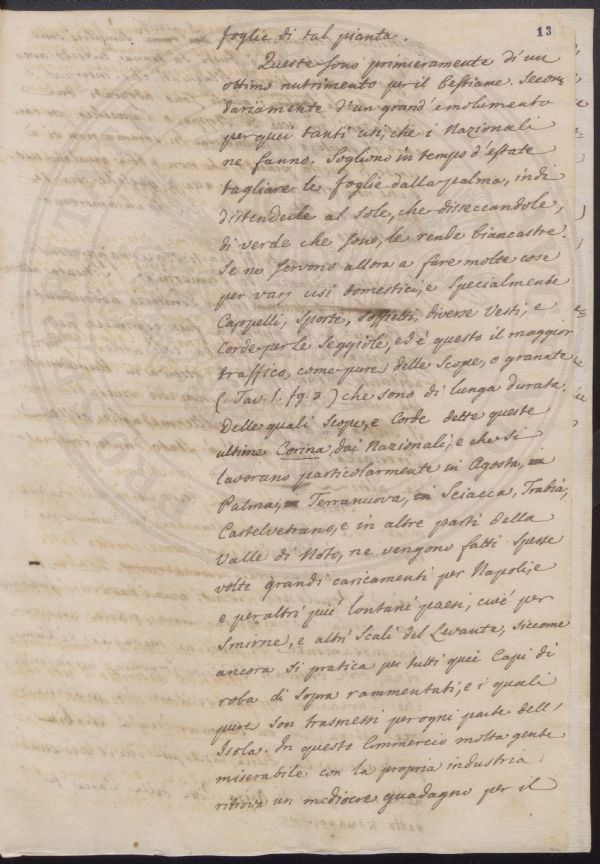 13
foglie di tal pianta.
Queste sono primieramente d'un
ottimo nutrimento per il bestiame. Secon=
dariamente d'un grand'emolumento
per quei tanti usi, che i Nazionali
ne fanno. Sogliono in tempo d'estate
tagliare le foglie dalla palma, indi
distenderle al sole, che disseccandole,
di verde che sono, le rende biancastre.
Se ne servono allora a fare molte cose
per varj usi domestici, e specialmente
Cappelli, Sporte, Soffietti, diverse Vesti, e
Corde per le Seggiole, ed è questo il maggior
traffico, come pure delle Scope, o granate
(Tav. 1. fig. 3.) che sono di lunga durata.
Delle quali Scope, e Corde dette queste
ultime Corina, dai Nazionali, e che si
lavorano particolarmente in Agosta, in
Palma, in Terranuova, in Sciacca, Trabia,
Castelvetrano, e in altre parti della
Valle di Noto, ne vengono fatti spesse
volte grandi caricamenti per Napoli, e
e per altri più lontani paesi, cioè per
Smirne, e altri Scali del Levante, siccome
ancora si pratica per tutti quei Capi di
roba di sopra rammentati, e i quali
pure son trasmessi per ogni parte dell'
Isola. In questo Commercio molta gente
miserabile con la propria industria
ritrova un mediocre guadagno per il